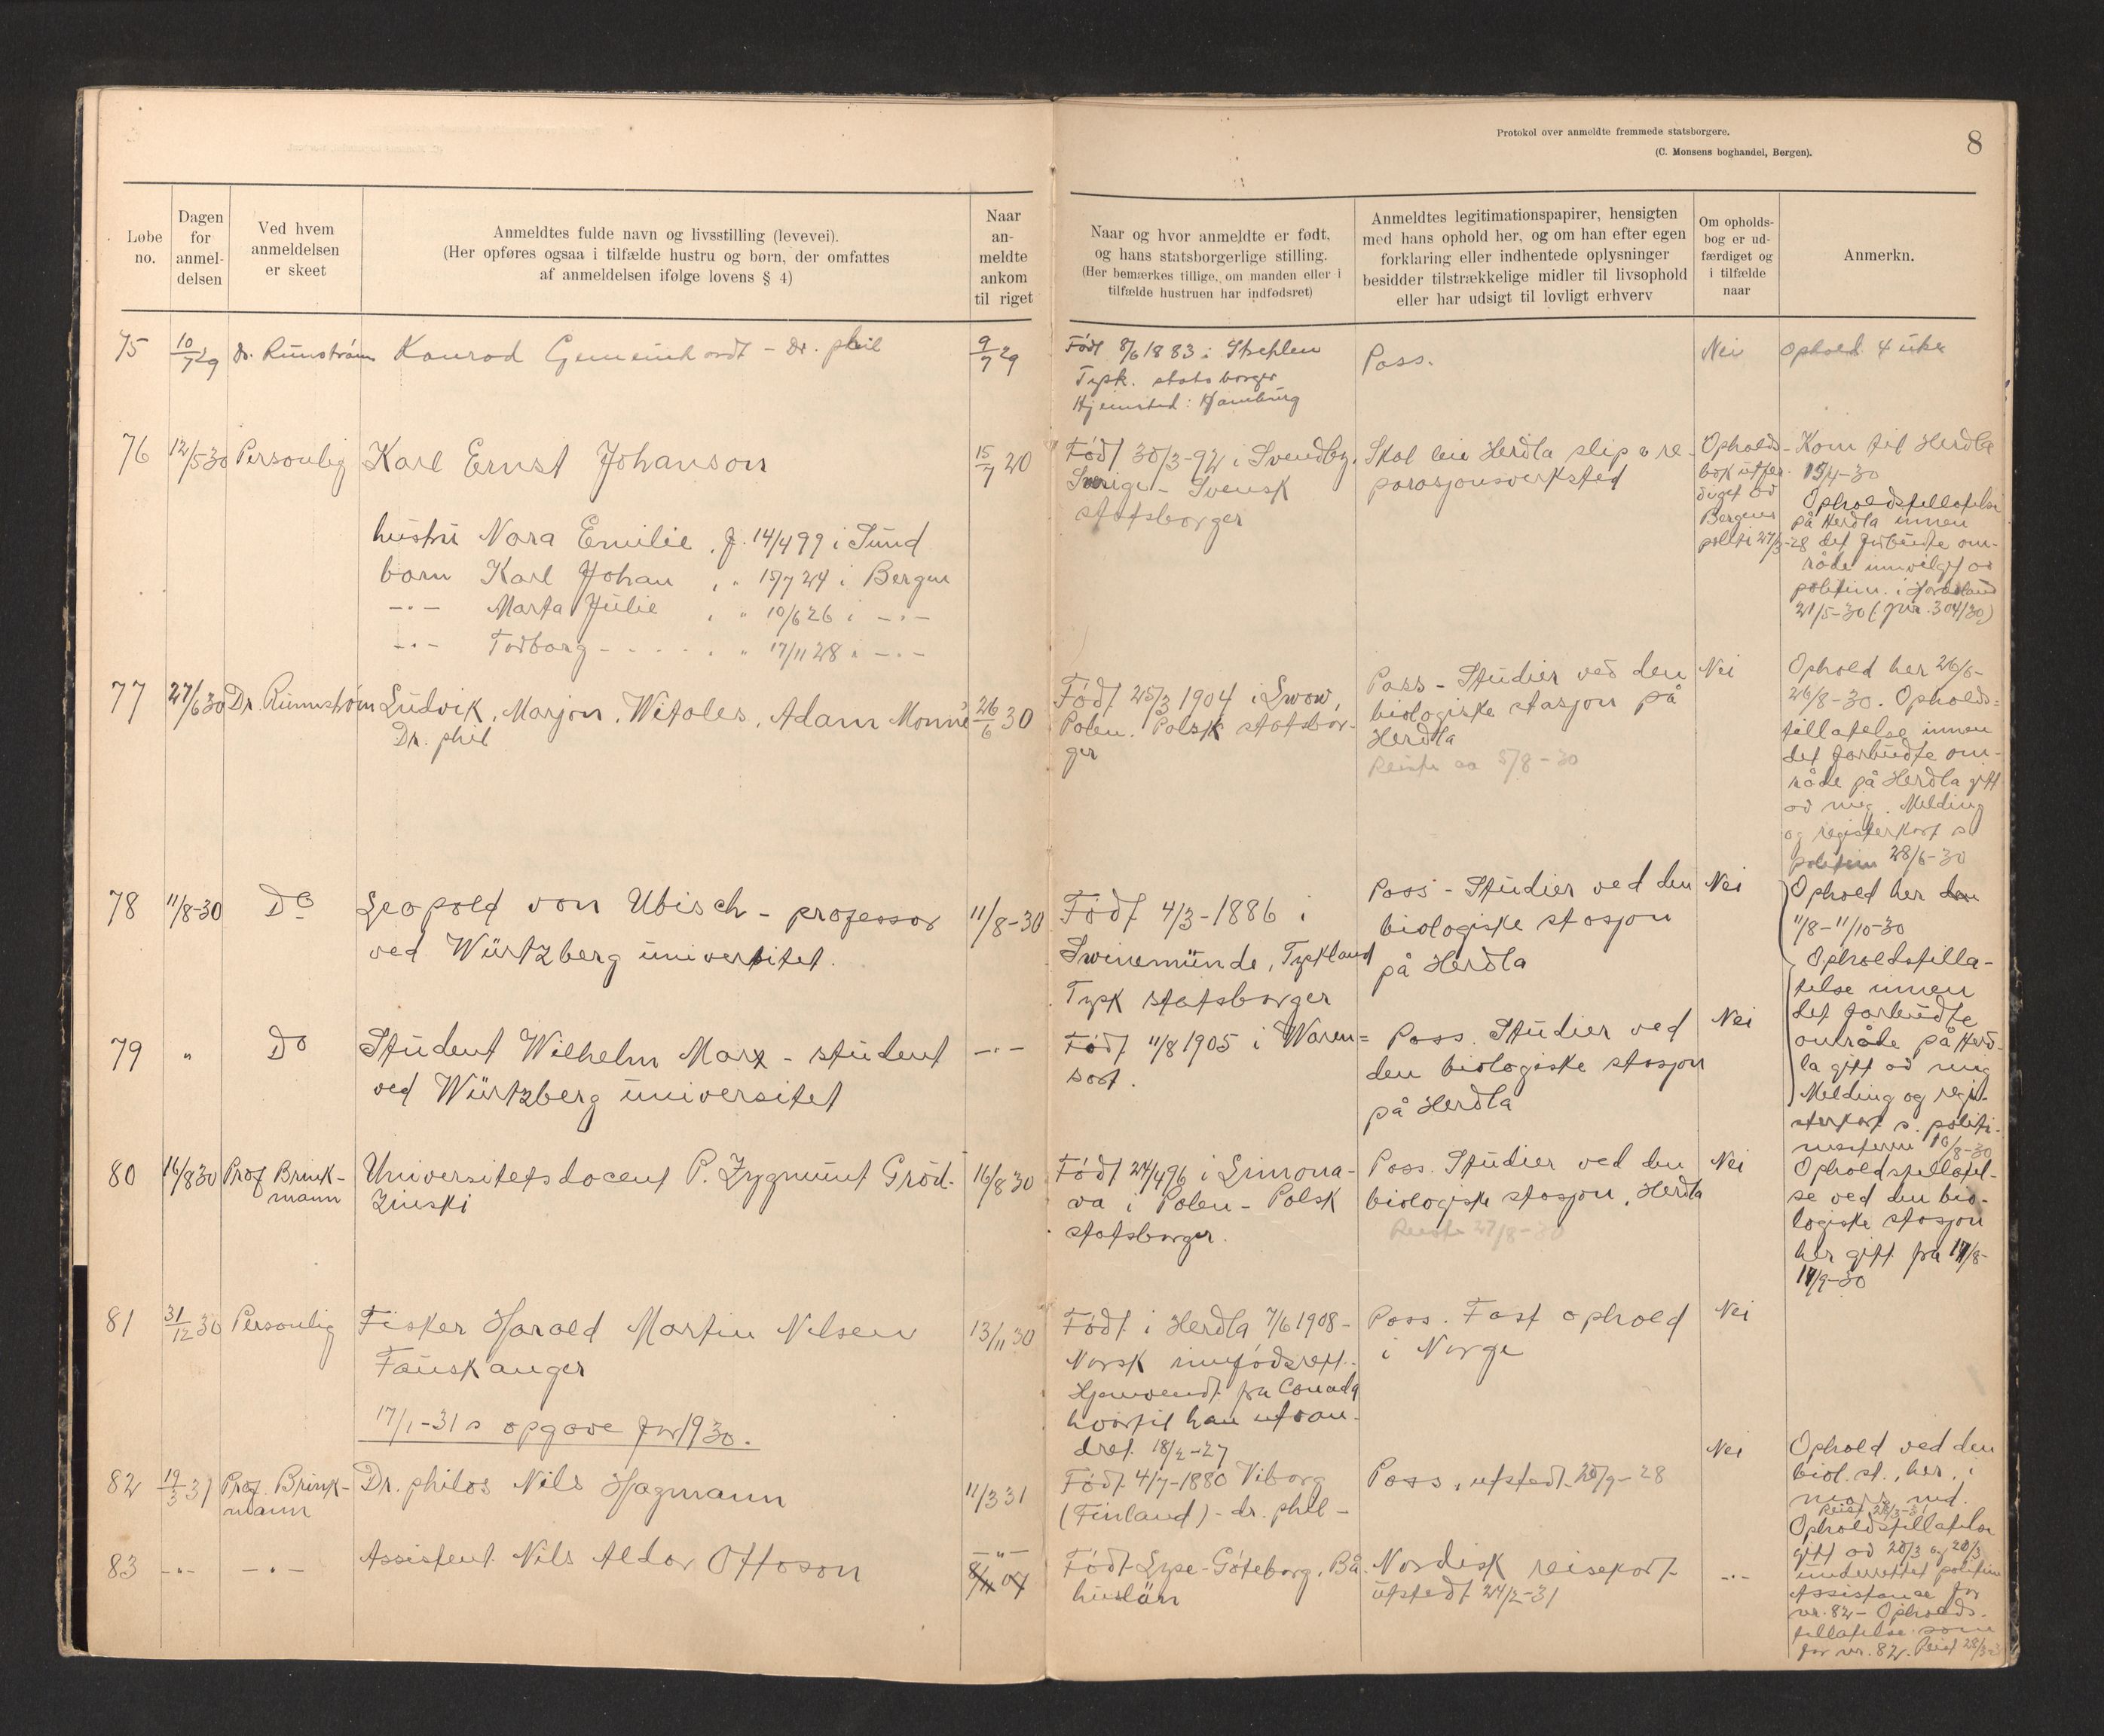 Protokol over anmeldte fremmede statsborgere.
(C. Monsens boghandel, Bergen).
8
Løbe no.
Dagen for anmeldelsen
Ved hvem anmeldelsen er skeet
Anmeldtes fulde navn og livsstilling (levevei).
(Her opføres ogsaa i tilfælde hustru og børn, der omfattes
af anmeldelsen ifølge lovens § 4)
Naar anmeldte ankom til riget
Naar og hvor anmeldte er født,
og hans statsborgerlige stilling.
(Her bemærkes tillige, om manden eller i
tilfælde hustruen har indfødsret)
Anmeldtes legitimationspapirer, hensigten
med hans ophold her, og om han efter egen
forklaring eller indhentede oplysninger
besidder tilstrækkelige midler til livsophold
eller har udsigt til lovligt erhverv
Om opholdsbog er udfærdiget og i tilfælde naar
Anmerkn.
75
10/7 29
Dr. Runström
Konrad Gemeinhardt - Dr. phil
9/7 29
Født 8/6 1883 i Strehlen
Tysk. statsborger
Hjemsted: Hamburg
Pass.
Nei
Ophold 4 uker
76
12/5 30
Personlig
Karl Ernst Johanson
hustru Nora Emilie, f. 14/4 99 i Sund
barn Karl Johan „ „ 15/7 24 i Bergen
-"- Marta Julie „ „ 10/6 26 i -"-
-"- Torborg „ „ 17/11 28 i -"-
15/7 20
Født 30/3-92 i Svendby,
Sverige - Svensk
statsborger
Skal leie Herdla slip o re-
parasjonsverksted
Opholds-
bok utfer-
diget av
Bergens
politi 27/3-28
Kom til Herdla
15/4-30
Opholdstillatelse
på Herdla innen
det forbudte om-
råde innvilget av
politim. i Hordaland
21/5-30 (jnr. 304/30)
77
27/6 30
Dr. Runnström
Ludvik, Marjon, Witoles, Adam Monné
Dr. phil
26/6 30
Født 25/3 1904 i Lwow,
Polen. Polsk statsbor-
ger
Pass - Studier ved den
biologiske stasjon på
Herdla
Reiste 5/8-30
Nei
Ophold her 26/6-
26/8-30. Opholds-
tillatelse innen
det forbudte om-
råde på Herdla gitt
av mig. Melding
og registerkort s
politim 28/6-30
78
11/8-30
Do
Leopold von Ubisch - professor
ved Würtzberg universitet.
11/8-30
Født 4/3-1886 i
Swinemünde, Tyskland
Tysk statsborger
Pass - Studier ved den
biologiske stasjon
på Herdla
Nei
Ophold her
11/8-11/10-30
Opholdstilla-
telse innen
det forbudte
område på Herd-
la gitt av mig
Melding og regi-
sterkort s. politi-
mesteren 10/8-30
79
"
Do
Student Wilhelm Marx - student
ved Würtzberg universitet
-"-
Født 11/8 1905 i Waren-
dorf.
Pass. Studier ved
den biologiske stasjon
på Herdla
Nei
80
16/8 30
Prof Brink-
mann
Universitetsdocent P. Zygmunt Grod-
zinski
16/8 30
Født 24/4 96 i Limona-
va i Polen - Polsk
statsborger.
Pass. Studier ved den
biologiske stasjon, Herdla
Reiste 27/8-30
Nei
Opholdstillatel-
se ved den bio-
logiske stasjon
her gitt fra 17/8-
17/9-30
81
31/12 30
Personlig
Fisker Harald Martin Nilsen
Fauskanger
17/1-31 s opgave for 1930.
13/11 30
Født i Herdla 7/6 1908-
Norsk innfødsrett.
Hjemvendt fra Canada
hvortil han utvan-
dret 18/2-27
Pass. Fast ophold
i Norge
Nei
82
19/3 31
Prof. Brink-
mann
Dr. philos Nils Hagmann
11/3 31
Født 4/7-1880 Viborg
(Finland) - dr. phil -
Pass, utstedt 20/9-28
Nei
Ophold ved den
biol. st., her, i
mars md.
Opholdstillatelse
gitt av 20/3 og 20/3
underrettet politim
83
-"-
-"-
Assistent Nils Aldor Ottoson
-"-
Født Lyse-Göteborg, Bå-
huslän
Nordisk reisekort
utstedt 24/2-31
-"-
Assistanse for
nr. 82 - Opholds-
tillatelse som
for nr. 82. Reist 28/3-31